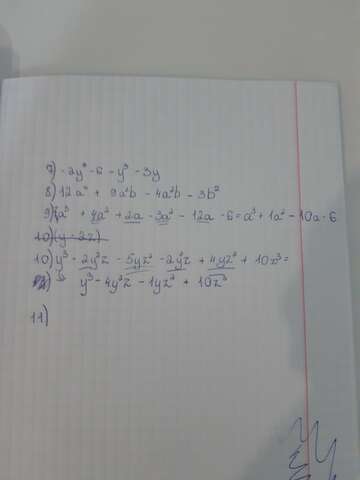 7) -2y² - 6 - y³ - 3y
8) 12a³ + 9a²b - 4a²b - 3b²
9) a³ + 4a² + 2a - 3a² - 12a - 6 = a³ + 1a² - 10a - 6
10) (y - 2z)
10) y³ - 2y²z - 5yz² - 2y²z + 4yz² + 10z³ =
y³ - 4y²z - 1yz² + 10z³
11)